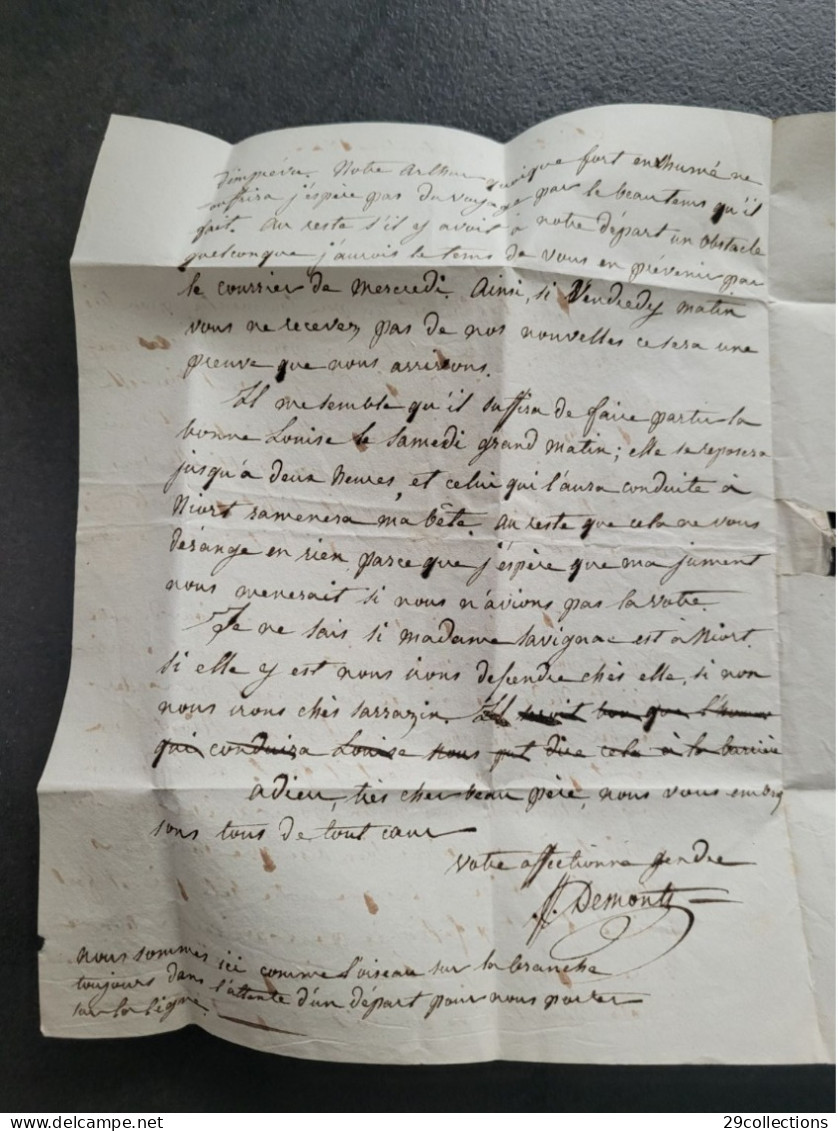 d'imprévu. Notre Arthur quoique fort enrhumé ne
souffrira j'espère pas du voyage par le beau tems qu'il
fait. Au reste s'il y avoit à notre départ un obstacle
quelconque j'aurois le tems de vous en prévenir par
le courrier de mercredi. Ainsi, si Vendredy matin
vous ne recevez pas de nos nouvelles ce sera une
preuve que nous arriverons.
Il me semble qu'il suffira de faire partir la
bonne Louise le Samedi grand matin; elle se reposera
jusqu'à deux heures, et celui qui l'aura conduite à
Niort ramenera ma bête. Au reste que cela ne vous
dérange en rien, parce que j'espère que ma jument
nous menerait si nous n'avions pas la votre.
Je ne sais si madame Savignac est à Niort.
si elle y est nous irons descendre chés elle, si non
nous irons chés Sarrazin. Il seroit bon que l'homme
qui conduira Louise nous put dire cela à la barrière
adieu, très cher beau père, nous vous embras
sons tous de tout cœur
Votre affectionné gendre
Demonts
nous sommes ici comme l'oiseau sur la branche
toujours dans l'attente d'un départ pour nous porter
sur la ligne.
29collections